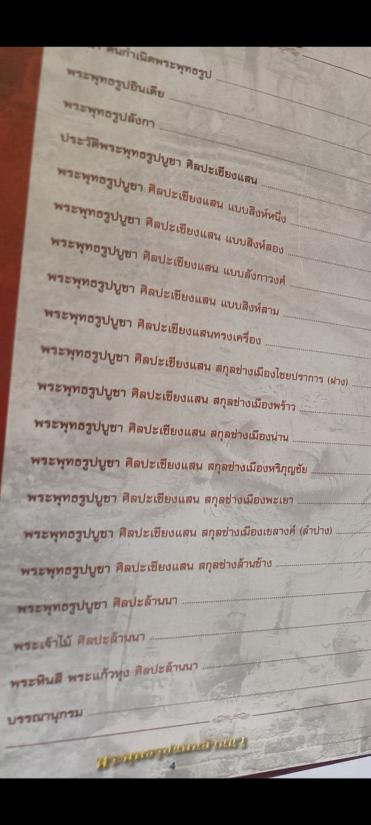 ต้นกำเนิดพระพุทธรูป
พระพุทธรูปอินเดีย
พระพุทธรูปลังกา
ประวัติพระพุทธรูปบูชา ศิลปะเชียงแสน
พระพุทธรูปบูชา ศิลปะเชียงแสน แบบสิงห์หนึ่ง
พระพุทธรูปบูชา ศิลปะเชียงแสน แบบสิงห์สอง
พระพุทธรูปบูชา ศิลปะเชียงแสน แบบลังกาวงศ์
พระพุทธรูปบูชา ศิลปะเชียงแสน แบบสิงห์สาม
พระพุทธรูปบูชา ศิลปะเชียงแสนทรงเครื่อง
พระพุทธรูปบูชา ศิลปะเชียงแสน สกุลช่างเมืองไชยปราการ (ฝาง)
พระพุทธรูปบูชา ศิลปะเชียงแสน สกุลช่างเมืองพร้าว
พระพุทธรูปบูชา ศิลปะเชียงแสน สกุลช่างเมืองน่าน
พระพุทธรูปบูชา ศิลปะเชียงแสน สกุลช่างเมืองหริภุญชัย
พระพุทธรูปบูชา ศิลปะเชียงแสน สกุลช่างเมืองพะเยา
พระพุทธรูปบูชา ศิลปะเชียงแสน สกุลช่างเมืองเขลางค์ (ลำปาง)
พระพุทธรูปบูชา ศิลปะเชียงแสน สกุลช่างล้านช้าง
พระพุทธรูปบูชา ศิลปะล้านนา
พระเจ้าไม้ ศิลปะล้านนา
พระหินสี พระแก้วทุง ศิลปะล้านนา
บรรณานุกรม
4